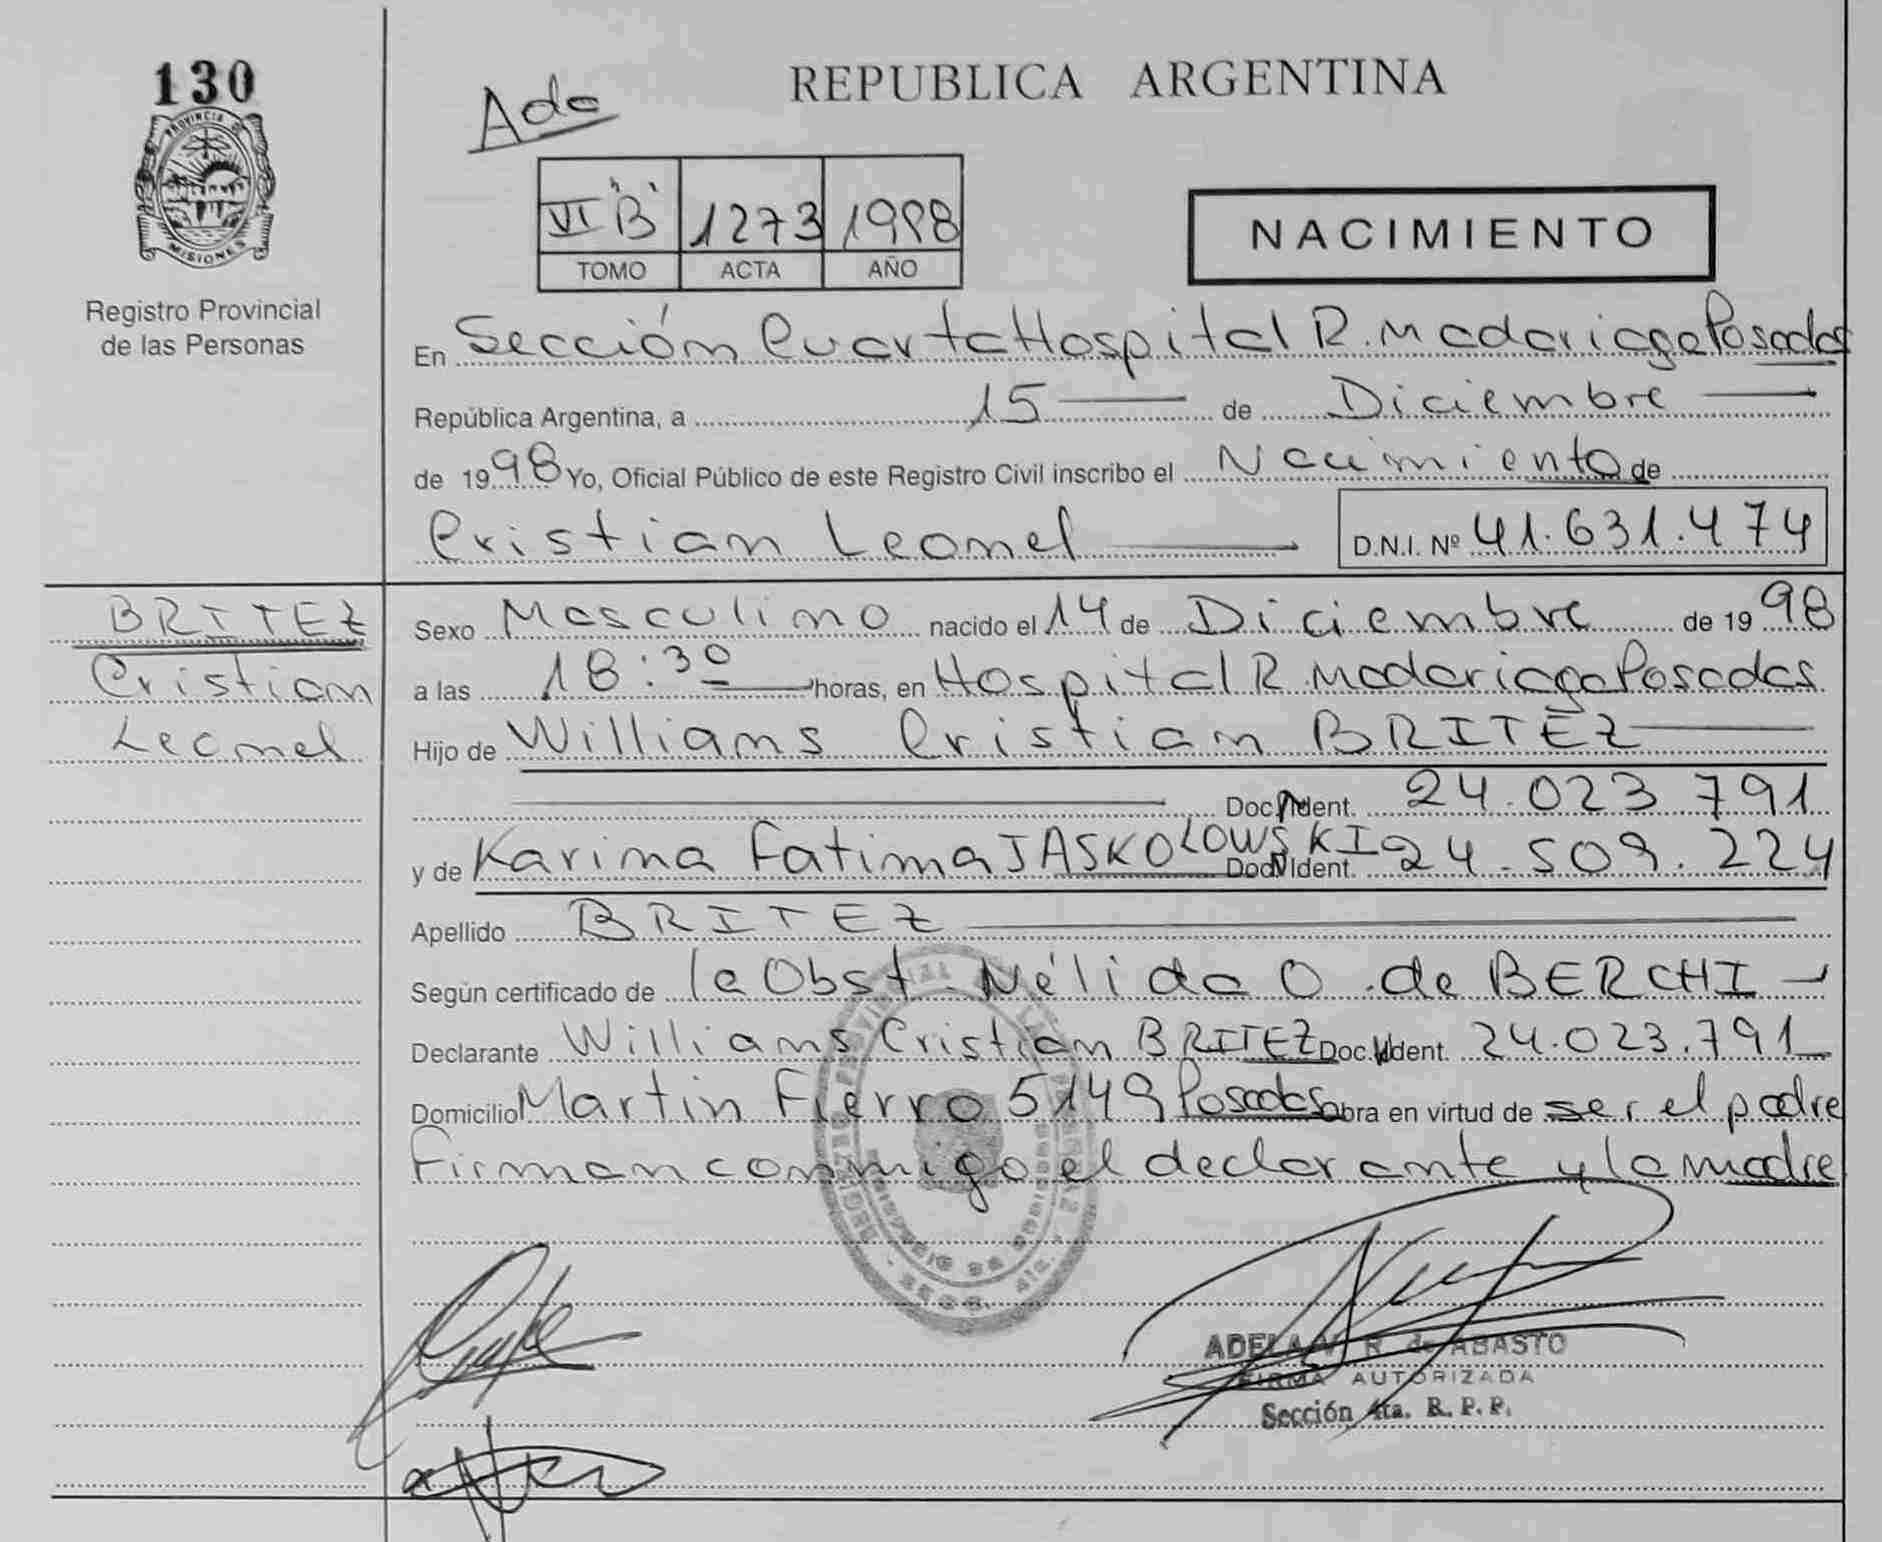 130
PROVINCIA DE
MISIONES
Registro Provincial
de las Personas
Ada
REPUBLICA ARGENTINA
VI "B" 1273 1998
TOMO ACTA AÑO
NACIMIENTO
En Sección Cuarta Hospital R. Madariaga Posadas
República Argentina, a 15 de Diciembre
de 1998 Yo, Oficial Público de este Registro Civil inscribo el Nacimiento de
Cristian Leonel D.N.I. Nº 41.631.474
BRITEZ
Cristian
Leonel
Sexo Masculino nacido el 14 de Diciembre de 1998
a las 18:30 horas, en Hospital R. Madariaga Posadas
Hijo de Williams Cristian BRITEZ
Doc. Ident. 24.023.791
y de Karina Fatima JASKOLOWSKI Doc. Ident. 24.509.224
Apellido BRITEZ
Según certificado de la Obst. Nélida O. de BERCHI
Declarante Williams Cristian BRITEZ Doc. Ident. 24.023.791
Domicilio Martin Fierro 5149 Posadas obra en virtud de ser el padre
Firman conmigo el declarante y la madre
ADELA V. R. de ABASTO
FIRMA AUTORIZADA
Sección 4ta. R. P. P.